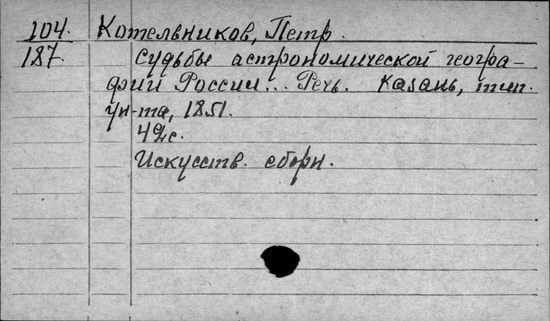 104. Котельников, Петр.
187. Судьбы астрономической геогра-
фии России... Речь. Казань, тип.
ун-та, 1851.
42с.
Искусств. сборн.